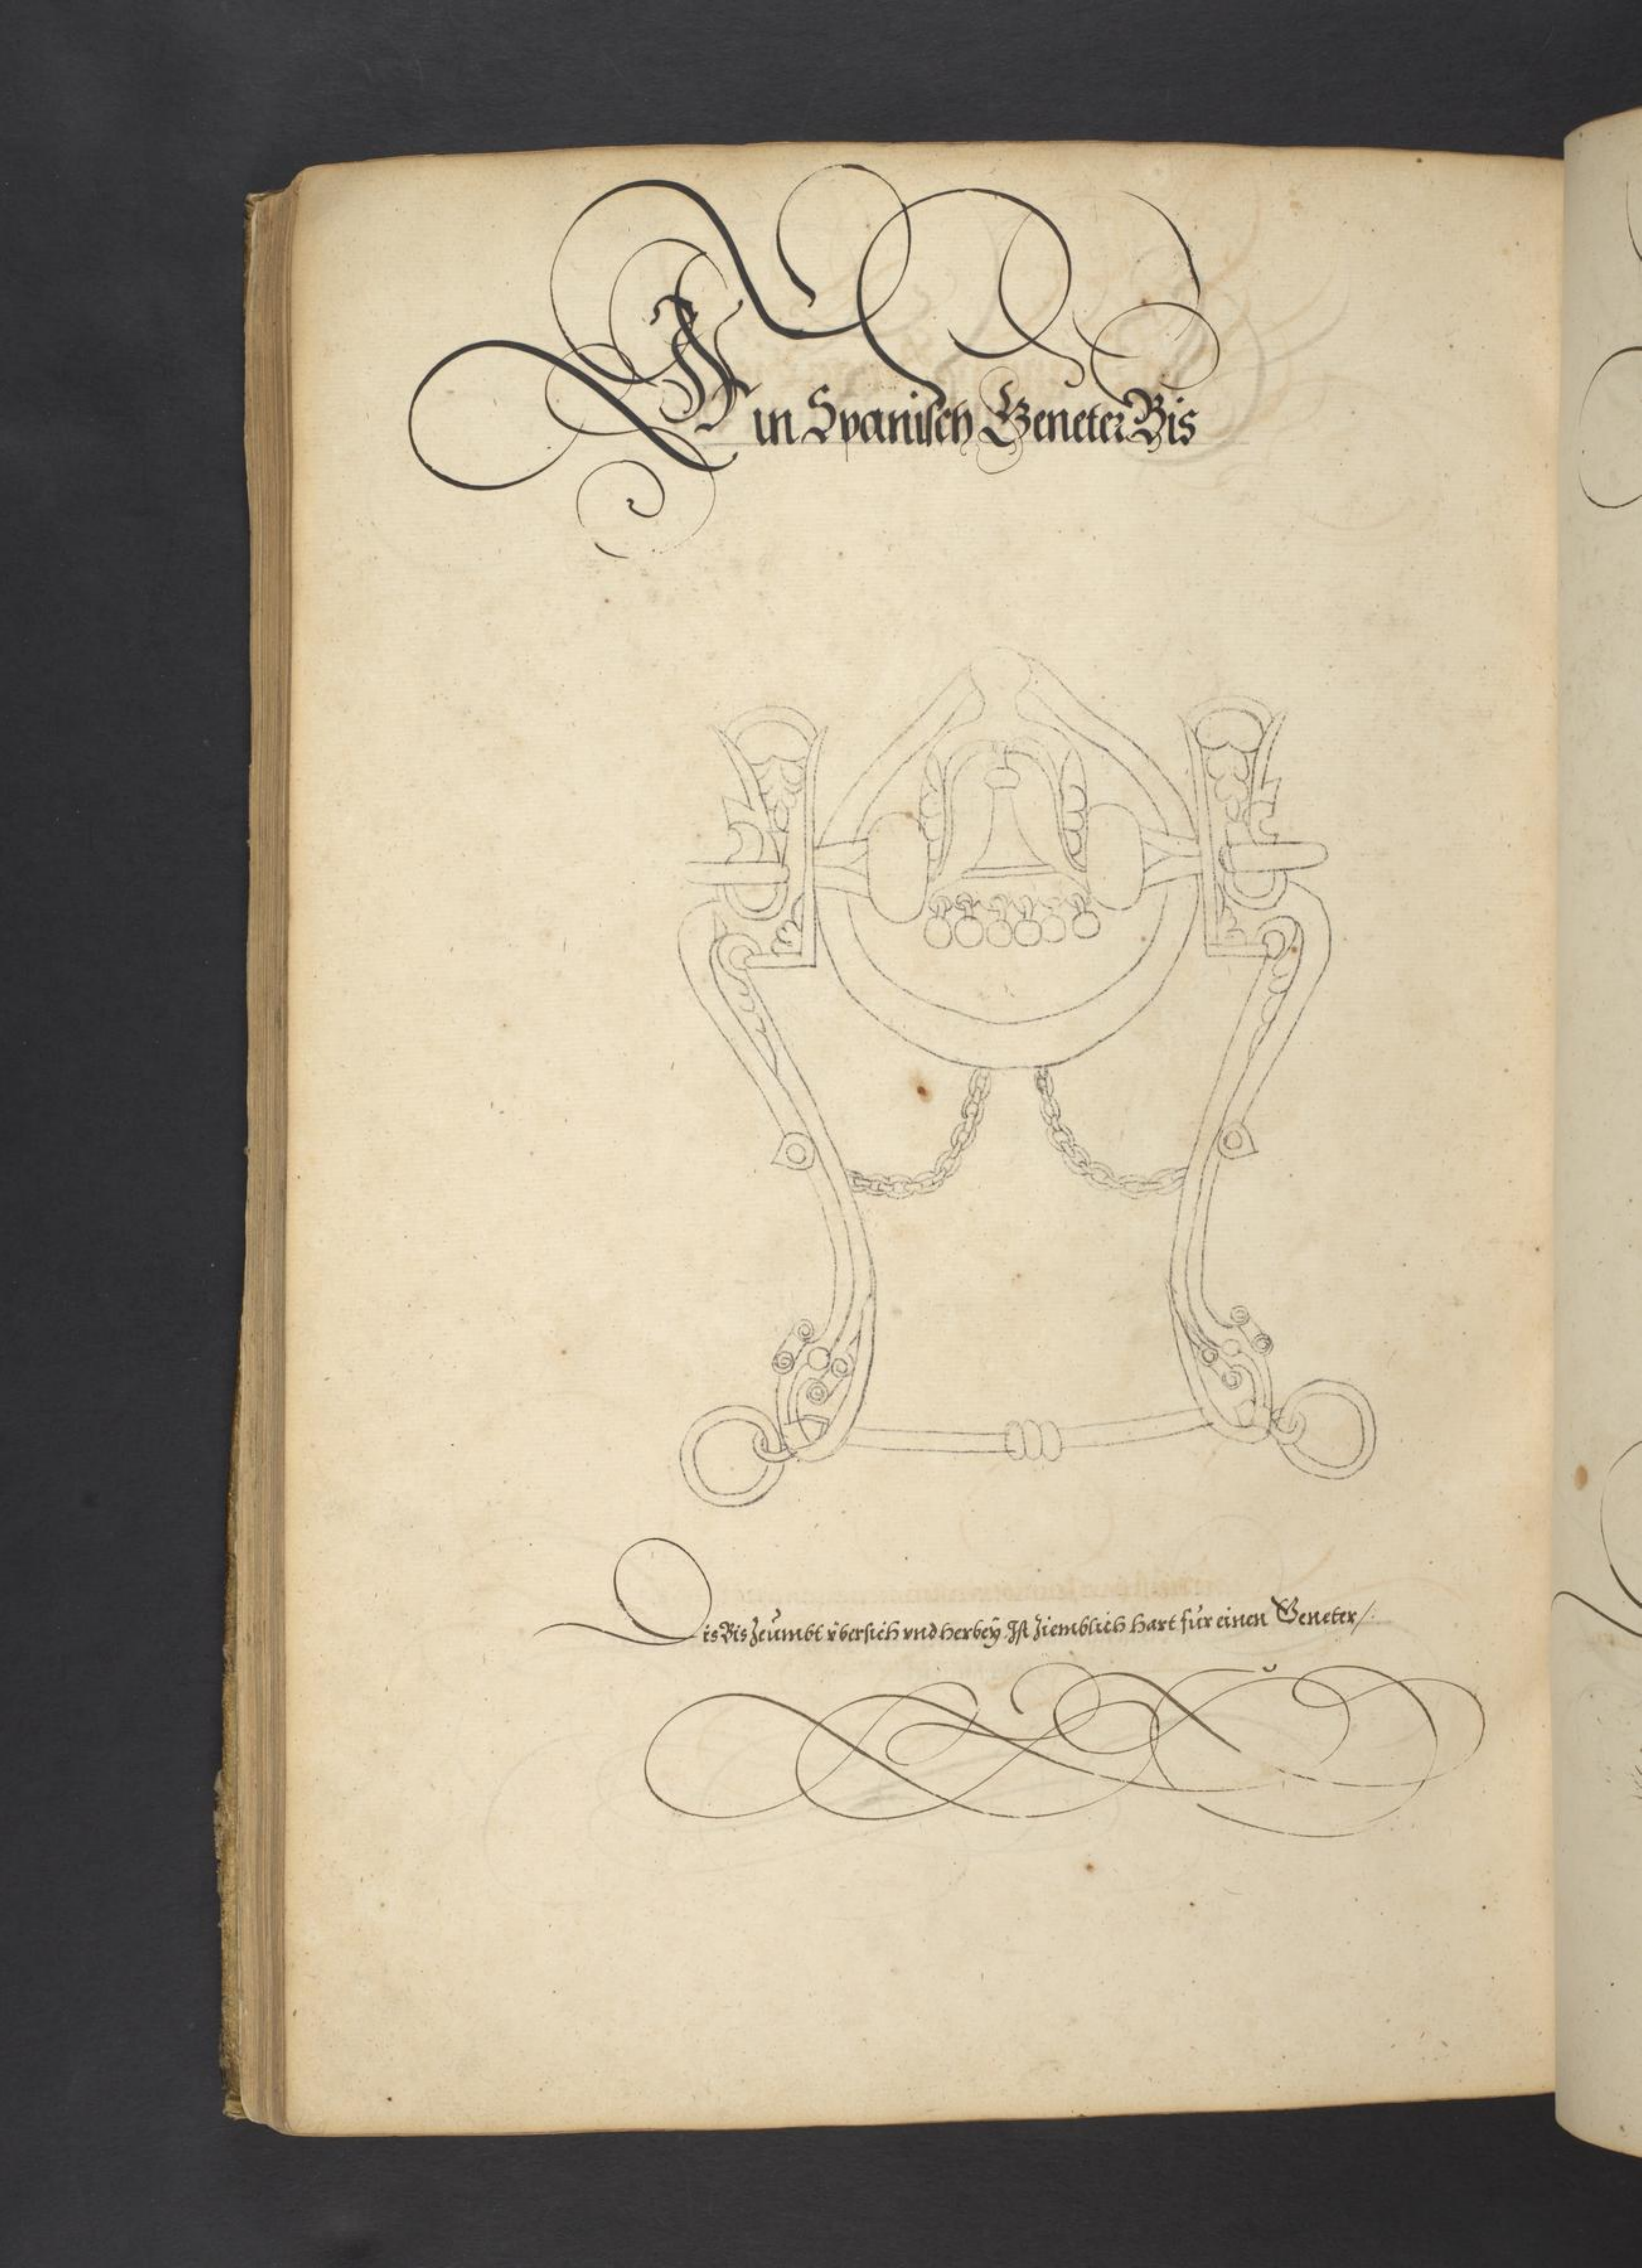 Ein Spanisch Geneter Bis
Dis Bis Zeümbt vbersich vnd herbeÿ Ist Ziemblich hart für einen Geneter /